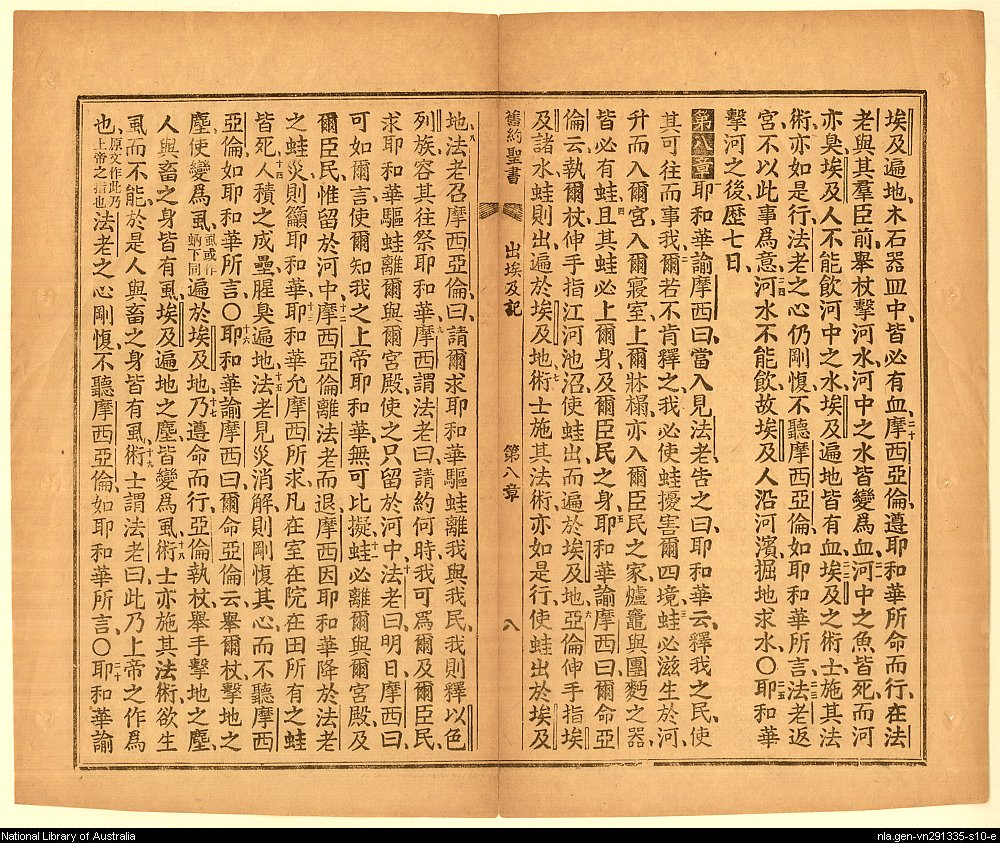 埃及遍地、木石器皿中、皆必有血、二十摩西亞倫遵耶和華所命而行、在法
老與其羣臣前、舉杖擊河水、河中之水皆變爲血、二一河中之魚皆死、而河
亦臭、埃及人不能飲河中之水、埃及遍地皆有血、二二埃及之術士、施其法
術、亦如是行、法老之心仍剛愎、不聽摩西亞倫、如耶和華所言、二三法老返
宮、不以此事爲意、二四河水不能飲、故埃及人沿河濱掘地求水、〇二五耶和華
擊河之後、歷七日、
第八章 耶和華諭摩西曰、當入見法老、告之曰、耶和華云、釋我之民、使
其可往而事我、二爾若不肯釋之、我必使蛙擾害爾四境、三蛙必滋生於河、
升而入爾宮、入爾寢室、上爾牀榻、亦入爾臣民之家、爐竈與團麪之器、
皆必有蛙、四且其蛙必上爾身、及爾臣民之身、五耶和華諭摩西曰、爾命亞
倫云、執爾杖、伸手指江河池沼、使蛙出而遍於埃及地、六亞倫伸手指埃
及諸水、蛙則出、遍於埃及地、七術士施其法術、亦如是行、使蛙出於埃及
舊約聖書 出埃及記 第八章 八
地、八法老召摩西亞倫曰、請爾求耶和華驅蛙離我與我民、我則釋以色
列族、容其往祭耶和華、九摩西謂法老曰、請約何時、我可爲爾及爾臣民、
求耶和華驅蛙離爾與爾宮殿、使之只留於河中、十法老曰、明日、摩西曰、
可如爾言、使爾知我之上帝耶和華、無可比擬、十一蛙必離爾與爾宮殿、及
爾臣民、惟留於河中、十二摩西亞倫離法老而退、摩西因耶和華降於法老
之蛙災、則籲耶和華、十三耶和華允摩西所求、凡在室在院在田所有之蛙
皆死、十四人積之成壘、腥臭遍地、十五法老見災消解、則剛愎其心、而不聽摩西
亞倫、如耶和華所言、〇十六耶和華諭摩西曰、爾命亞倫云、舉爾杖擊地之
塵、使變爲虱、虱或作蚋下同遍於埃及地、十七乃遵命而行、亞倫執杖、舉手擊地之塵、
人與畜之身皆有虱、埃及遍地之塵、皆變爲虱、十八術士亦施其法術、欲生
虱而不能、於是人與畜之身皆有虱、十九術士謂法老曰、此乃上帝之作爲
也、原文作此乃上帝之指也法老之心剛愎、不聽摩西亞倫、如耶和華所言、〇二十耶和華諭
National Library of Australia
nla.gen-vn291335-s10-e